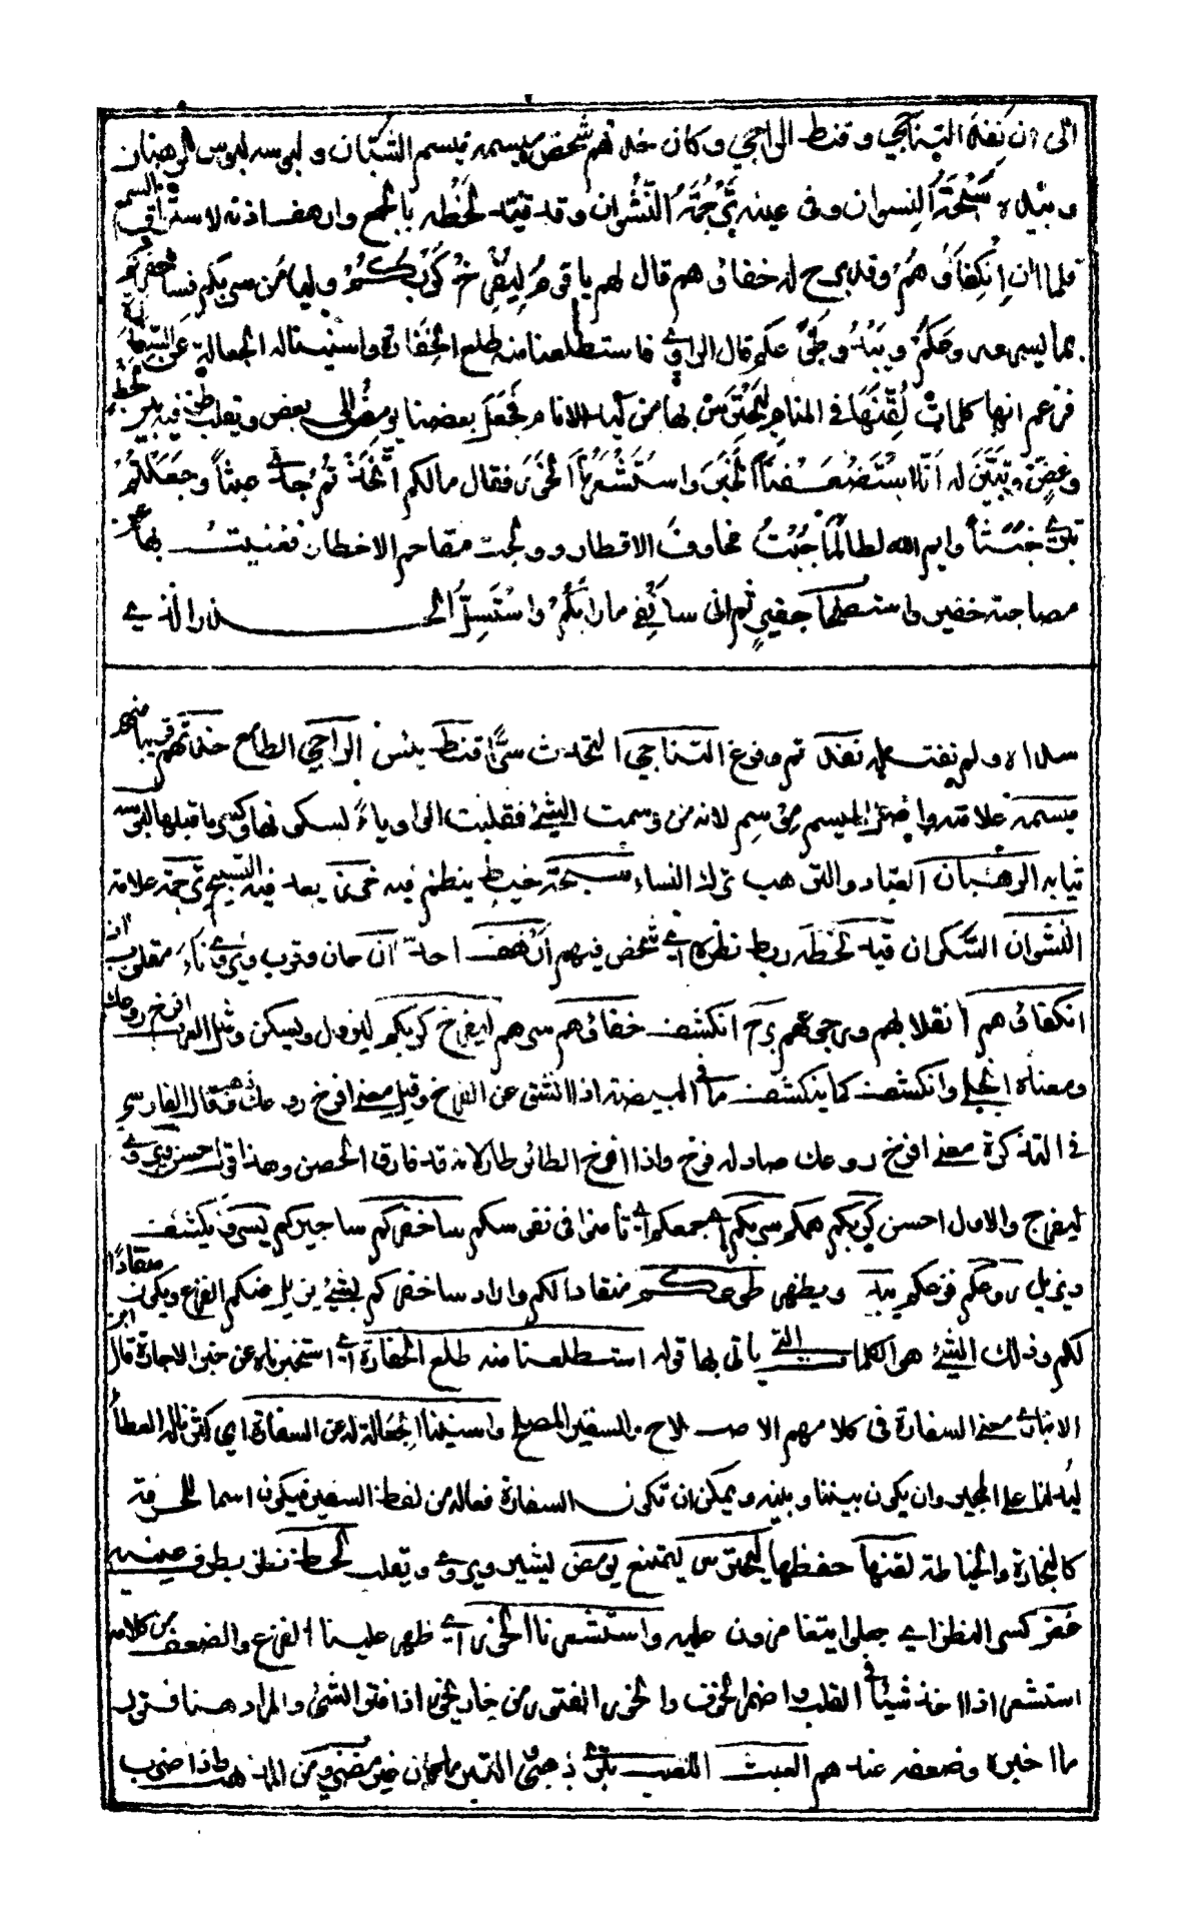 الى ان نفد التناجي وقنط الراجي وكان حذتهم شخص ميسمه ميسم الشبان ولبوسه لبوس الرهبان
وبيده سبحة النسوان وفي عينه ترجمة النشوان وقد قيد لحظه بالجمع وارهف اذنه لاستراق السمع
فلما ان انكفاؤهم وقد برح له خفاؤهم قال لهم يا قوم ليفرخ كربكم وليامن سربكم فساخفركم
بما يسرو روعكم ويبدو طوعكم قال الراوي فاستطلعنا منه طلع الخفارة واسنينا له الجعالة عن السفارة
فزعم انها كلمات لقنها في المنام ليحترس بها من كيد الانام فجعل بعضنا يومض الى بعض ويقلب طرفيه بين لحظ
وغض وتبين له انا استضعفنا الخبر واستشعرنا الخور فقال مالكم اتخذتم جدي عبثا وجعلتم
تبري خبثا وايم الله لطالما جبت مخاوف الاقطار وولجت مقاحم الاخطار فغنيت بها عن
مصاحبة خفير واستصحاب جفير ثم اني سانفي ما رابكم واستسل الحذر الذي
سداه ولم نفد تم وفرغ التناجي التحدث سرا قنط يئس الراجي الطامع حذتهم قريبا منهم
ميسمه علامته واصل الميسم موسم لانه من وسمت الشيء فقلبت الواو ياء لسكونها وكسر ما قبلها لبوسه
ثيابه الرهبان العباد والترهب ترك النساء سبحة خيط ينظم فيه خرز يعد فيه التسبيح ترجمة علامة
النشوان السكران قيد لحظه ربط نظره اي شخص فيهم ارهف احد ان حان وقرب
انكفاؤهم انقلابهم ورجوعهم برح انكشف خفاؤهم سرهم ليفرخ كربكم ليزول ويسكن افرخ روعك
ومعناه انجلى وانكشف كما ينكشف ما في البيضة اذا انشق عن الفرخ وقيل معنى افرخ روعك ذهب فقال الفارسي
في التذكرة معنى افرخ روعك صار له فرخ واذا افرخ الطائر طار لانه قد فارق الحصن وهذا قول حسن ويروى
ليفرج والاول احسن كربكم همكم سربكم جمعكم اي تامنوا في نفوسكم ساخفركم ساجيركم يسرو يكشف
ويزيل روعكم فزعكم يبدو ويظهر طوعكم منقادا لكم واراد ساخفركم بشيء يزيل عنكم الفزع ويكون منقادا
لكم وذلك الشيء هو الكلمات التي ياتي بها قوله استطلعنا منه طلع الخفارة اي استخبرناه عن خبر الاجارة قال ابن
الانباري معنى السفارة في كلامهم الاصلاح والسفير المصلح واسنينا الجعالة له عن السفارة اي كثرنا له العطاء
وان يكون بيننا وبينه ويمكن ان تكون السفارة فعالة من لفظ السفير فيكون اسما للحرفة
كالنجارة والخياطة لقنها حفظها ليحترس ليمتنع يومض يشير ويروى ويقلب لحظ نظر بطرف عينيه
غض كسر النظر اي جعلوا يتغامزون عليه واستشعرنا الخور اي ظهر علينا الفزع والضعف من كلامه
استشعر اذا اخذ شيئا في القلب واضمر الخوف والخور الفتور من خار يخور اذا فتر الشيء والمراد هنا فتور
ما اخبره وضعفه عندهم العبث اللعب تبري ذهبي التبر ما كان غير مضروب من الذهب واذا ضرب